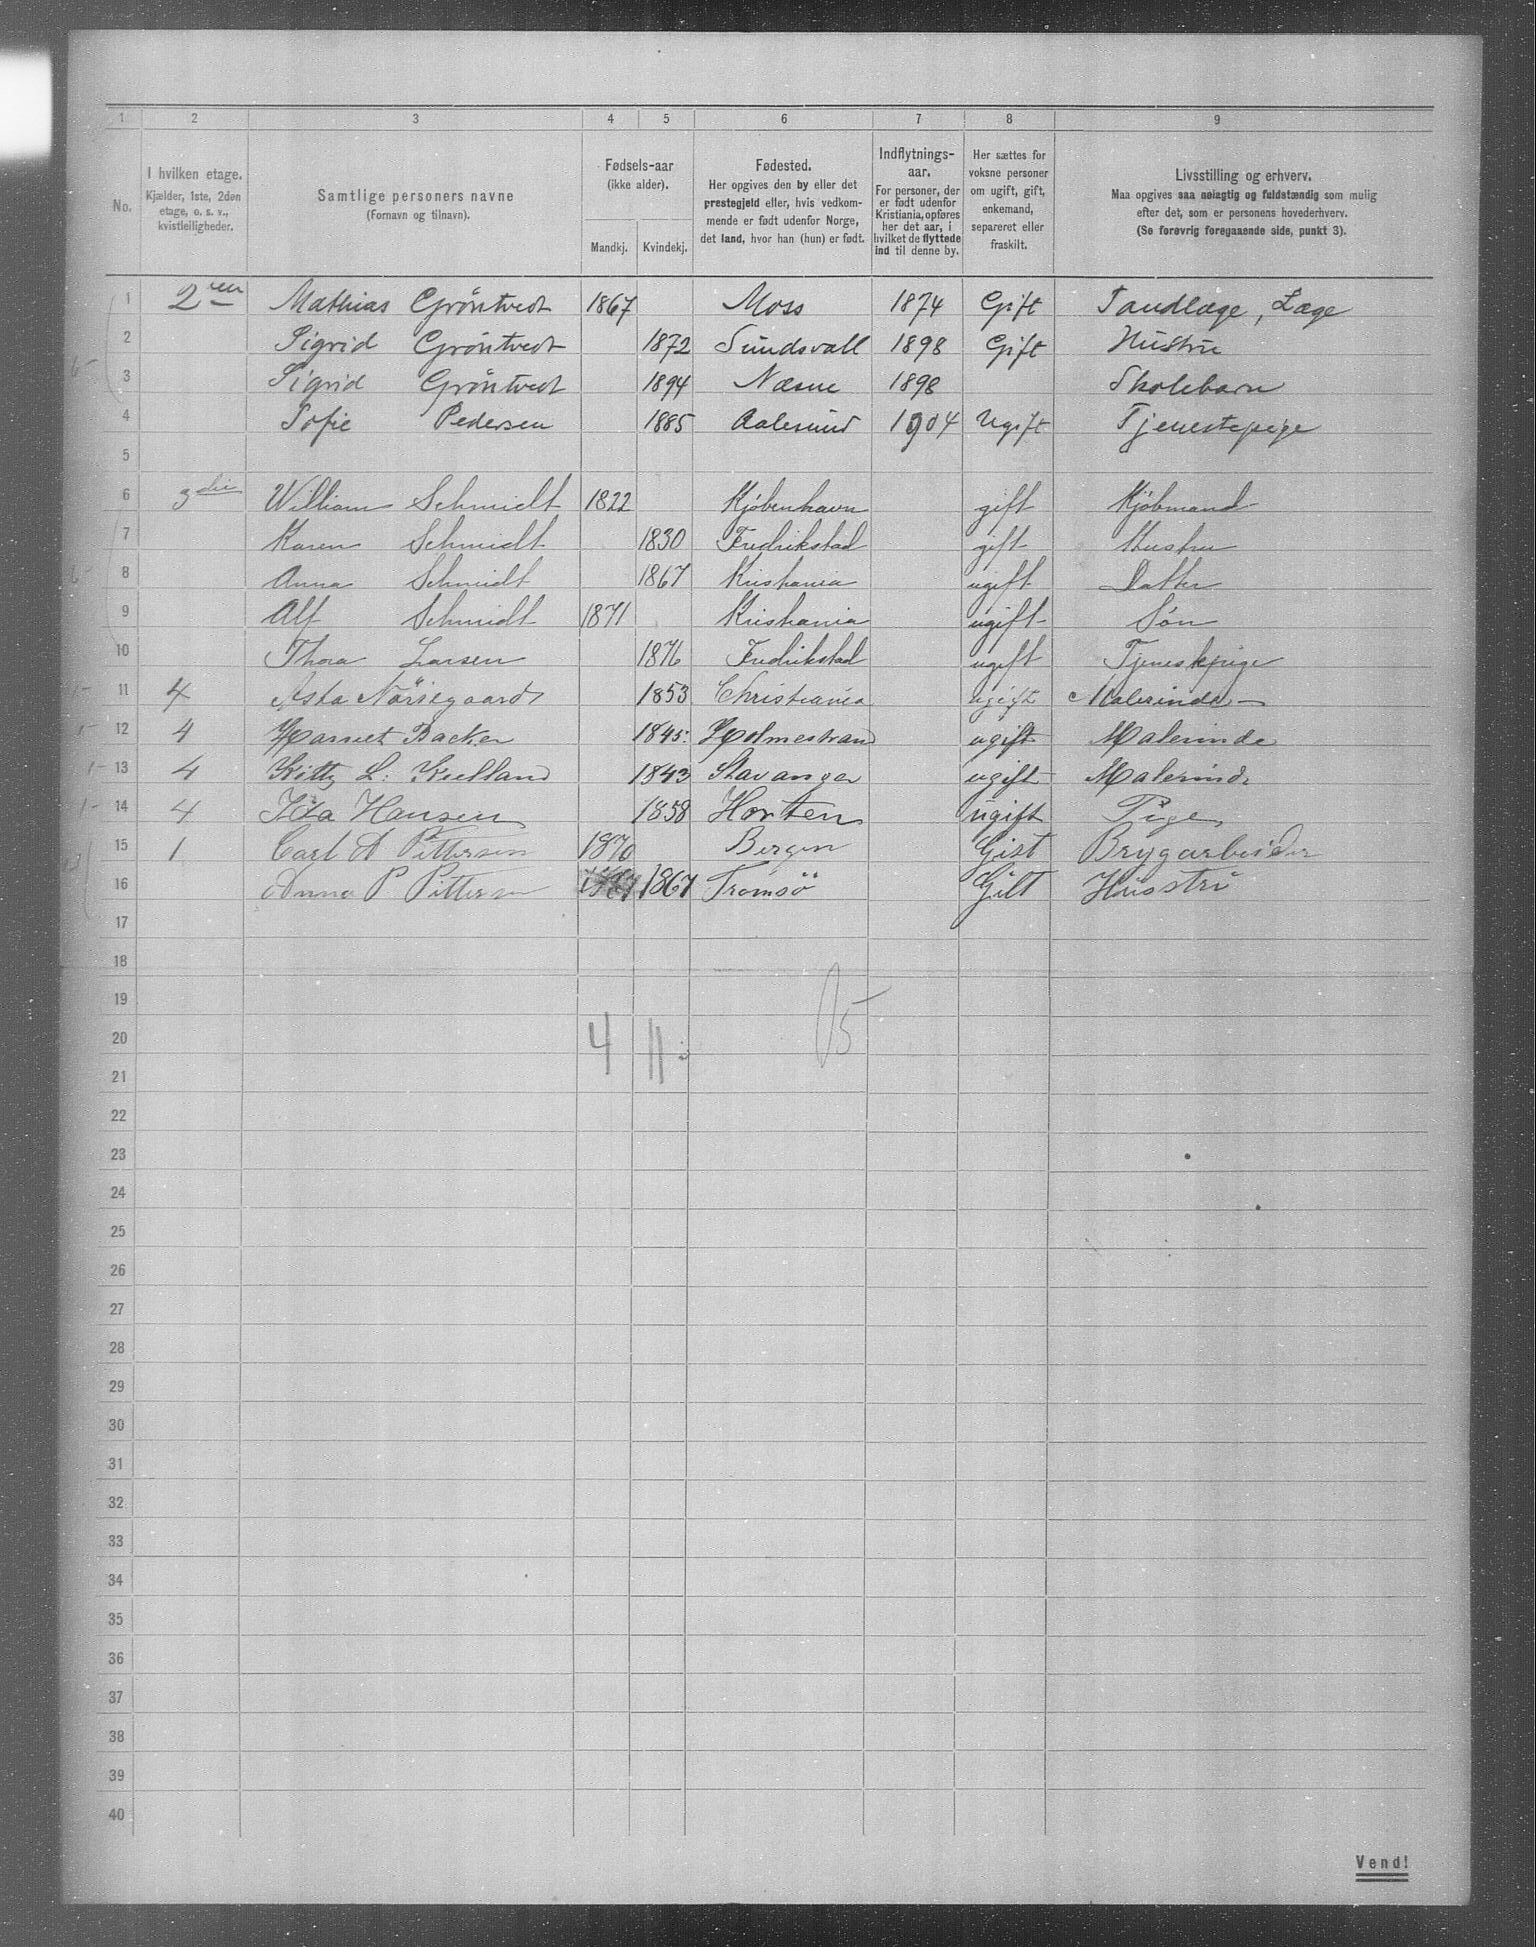 1 2 3 4 5 6 7 8 9
No.
I hvilken etage.
Kjælder, 1ste, 2den
etage, o. s. v.,
kvistleiligheder.
Samtlige personers navne
(Fornavn og tilnavn).
Fødsels-aar
(ikke alder).
Mandkj. Kvindekj.
Fødested.
Her opgives den by eller det
prestegjeld eller, hvis vedkom-
mende er født udenfor Norge,
det land, hvor han (hun) er født.
Indflytnings-
aar.
For personer, der
er født udenfor
Kristiania, opføres
her det aar, i
hvilket de flyttede
ind til denne by.
Her sættes for
voksne personer
om ugift, gift,
enkemand,
separeret eller
fraskilt.
Livsstilling og erhverv.
Maa opgives saa nøiagtig og fuldstændig som mulig
efter det, som er personens hovederhverv.
(Se forøvrig foregaaende side, punkt 3).
1 2den Mathias Gröntvedt 1867 Moss 1874 Gift Tandlæge, Læge
2 Sigrid Gröntvedt 1872 Sundsvall 1898 Gift Hustru
3 Sigrid Gröntvedt 1894 Næsne 1898 Skolebarn
4 Sofie Pedersen 1885 Aalesund 1904 Ugift Tjenestepige
5
6 3die William Schmidt 1822 Kjøbenhavn gift Kjøbmand
7 Karen Schmidt 1830 Fredrikstad gift Hustru
8 Anna Schmidt 1867 Kristiania ugift Datter
9 Alf Schmidt 1871 Kristiania ugift Søn
10 Thora Larsen 1876 Fredrikstad ugift Tjenestepige
11 4 Asta Nörregaard 1853 Christiania ugift Malerinde
12 4 Harriet Backer 1845 Holmestrand ugift Malerinde
13 4 Kitty L. Kielland 1843 Stavanger ugift Malerinde
14 4 Ida Hansen 1858 Horten ugift Pige
15 1 Carl A Pettersen 1870 Bergen Gift Brygarbeider
16 Anna P Pettersen 1867 Tromsö Gift Husstru
17
18
19
20 4 11 15
21
22
23
24
25
26
27
28
29
30
31
32
33
34
35
36
37
38
39
40
Vend!